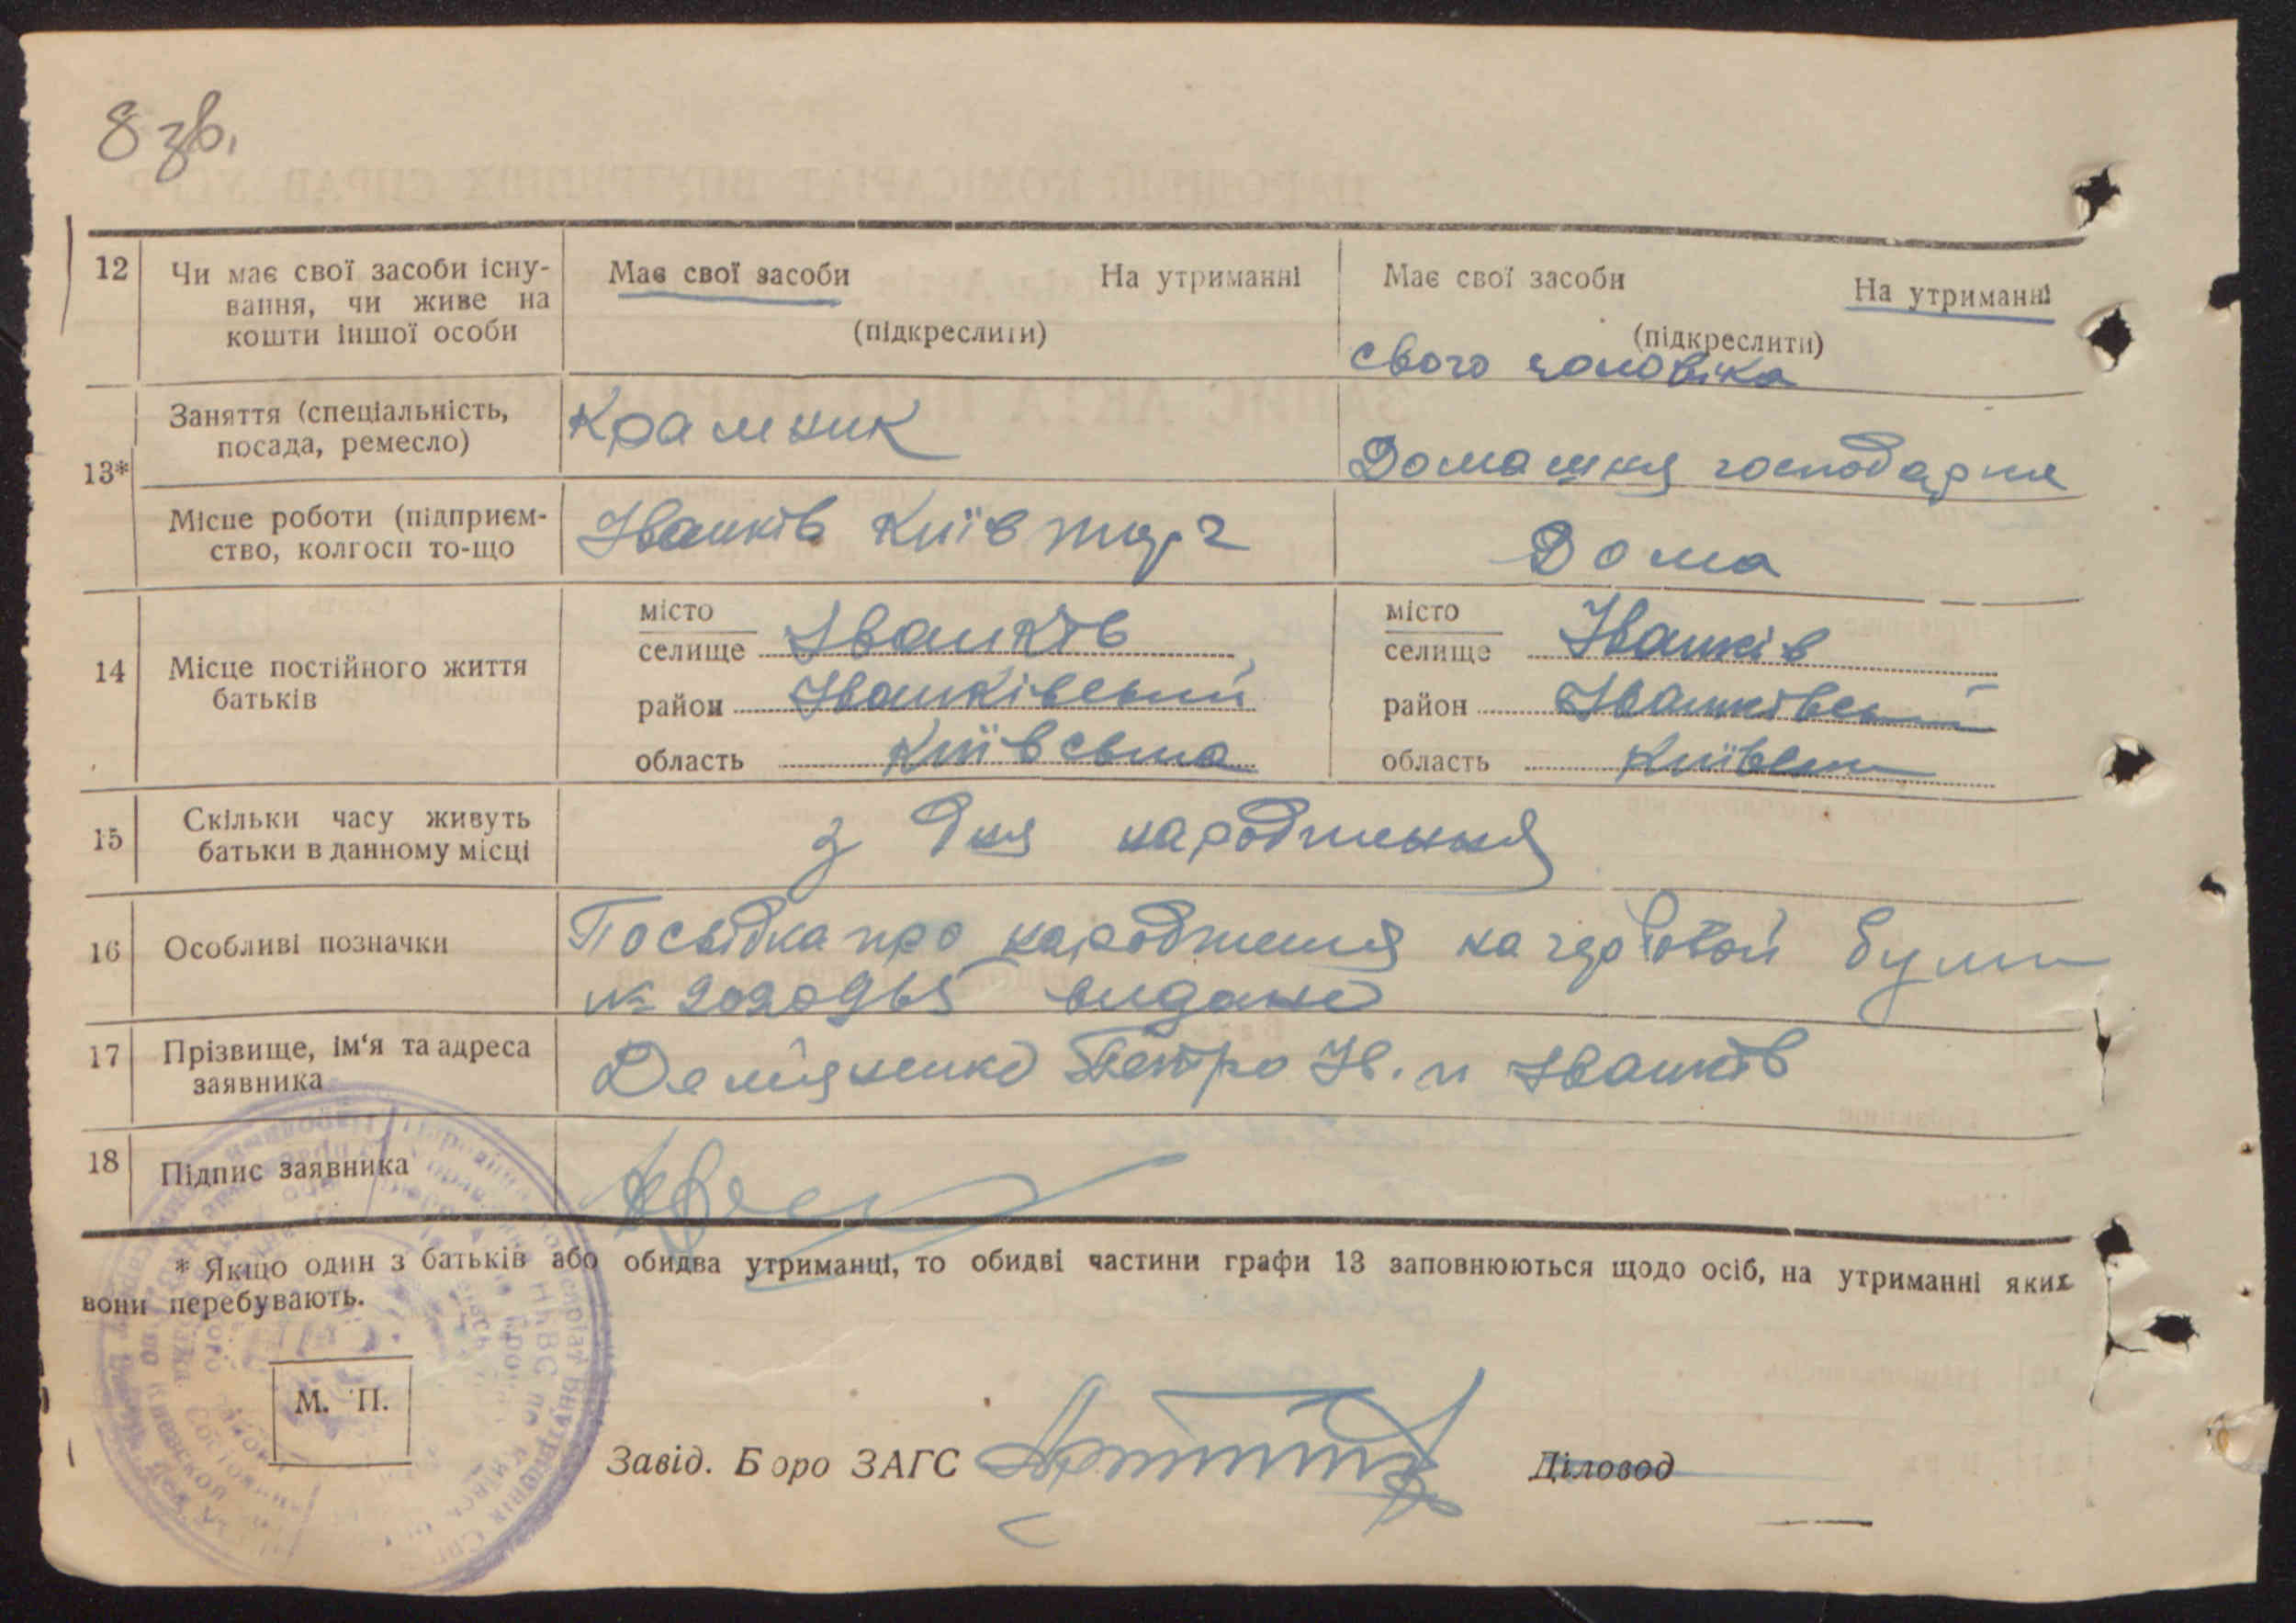 8 зв.
12 Чи має свої засоби існу-
вання, чи живе на
кошти іншої особи
Має свої засоби На утриманні
(підкреслити)
Має свої засоби На утриманні
(підкреслити)
свого чоловіка
13*
Заняття (спеціальність,
посада, ремесло)
Крамник
Домашня господарка
Місце роботи (підприєм-
ство, колгосп то-що
Іванків Київторг
Дома
14 Місце постійного життя
батьків
місто
селище Іванків
район Іванківський
область Київська
місто
селище Іванків
район Іванківський
область Київськ
15 Скільки часу живуть
батьки в данному місці
з дня народження
16 Особливі позначки
Посвідка про народження на гербовой бумаг
№ 2020965 видано
17 Прізвище, ім'я та адреса
заявника
Демяненко Петро Ів. м Іванків
18 Підпис заявника
* Якщо один з батьків або обидва утриманці, то обидві частини графи 13 заповнюються щодо осіб, на утриманні яких
вони перебувають.
М. П.
Завід. Бюро ЗАГС
Діловод